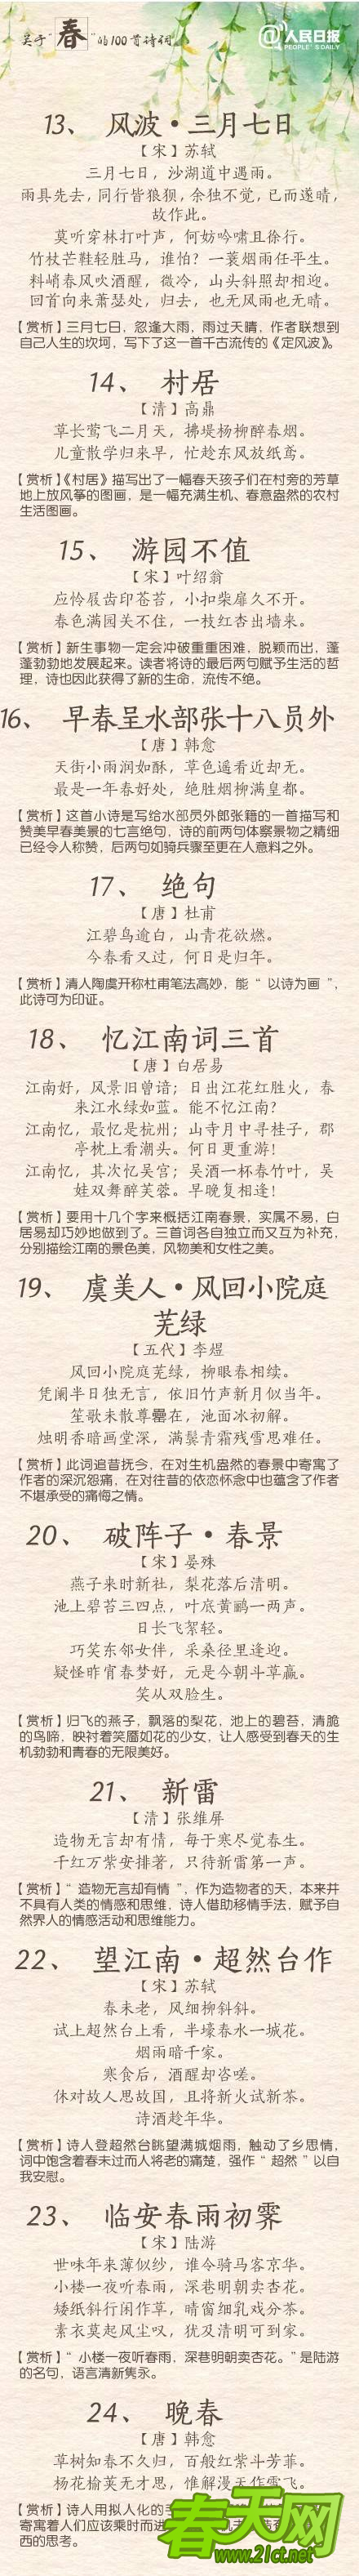 关于“春”的100首诗词
@人民日报
PEOPLE'S DAILY
13、 风波·三月七日
【宋】苏轼
三月七日，沙湖道中遇雨。
雨具先去，同行皆狼狈，余独不觉，已而遂晴，
故作此。
莫听穿林打叶声，何妨吟啸且徐行。
竹杖芒鞋轻胜马，谁怕？一蓑烟雨任平生。
料峭春风吹酒醒，微冷，山头斜照却相迎。
回首向来萧瑟处，归去，也无风雨也无晴。
【赏析】三月七日，忽逢大雨，雨过天晴，作者联想到
自己人生的坎坷，写下了这一首千古流传的《定风波》。
14、 村居
【清】高鼎
草长莺飞二月天，拂堤杨柳醉春烟。
儿童散学归来早，忙趁东风放纸鸢。
【赏析】《村居》描写出了一幅春天孩子们在村旁的芳草
地上放风筝的图画，是一幅充满生机、春意盎然的农村
生活图画。
15、 游园不值
【宋】叶绍翁
应怜屐齿印苍苔，小扣柴扉久不开。
春色满园关不住，一枝红杏出墙来。
【赏析】新生事物一定会冲破重重困难，脱颖而出，蓬
蓬勃勃地发展起来。读者将诗的最后两句赋予生活的哲
理，诗也因此获得了新的生命，流传不绝。
16、 早春呈水部张十八员外
【唐】韩愈
天街小雨润如酥，草色遥看近却无。
最是一年春好处，绝胜烟柳满皇都。
【赏析】这首小诗是写给水部员外郎张籍的一首描写和
赞美早春美景的七言绝句，诗的前两句体察景物之精细
已经令人称赞，后两句如骑兵骤至更在人意料之外。
17、 绝句
【唐】杜甫
江碧鸟逾白，山青花欲燃。
今春看又过，何日是归年。
【赏析】清人陶虞开称杜甫笔法高妙，能“以诗为画”，
此诗可为印证。
18、 忆江南词三首
【唐】白居易
江南好，风景旧曾谙；日出江花红胜火，春
来江水绿如蓝。能不忆江南？
江南忆，最忆是杭州；山寺月中寻桂子，郡
亭枕上看潮头。何日更重游！
江南忆，其次忆吴宫；吴酒一杯春竹叶，吴
娃双舞醉芙蓉。早晚复相逢！
【赏析】要用十几个字来概括江南春景，实属不易，白
居易却巧妙地做到了。三首词各自独立而又互为补充，
分别描绘江南的景色美，风物美和女性之美。
19、 虞美人·风回小院庭
芜绿
【五代】李煜
风回小院庭芜绿，柳眼春相续。
凭阑半日独无言，依旧竹声新月似当年。
笙歌未散尊罍在，池面冰初解。
烛明香暗画堂深，满鬓青霜残雪思难任。
【赏析】此词追昔抚今，在对生机盎然的春景中寄寓了
作者的深沉怨痛，在对往昔的依恋怀念中也蕴含了作者
不堪承受的痛悔之情。
20、 破阵子·春景
【宋】晏殊
燕子来时新社，梨花落后清明。
池上碧苔三四点，叶底黄鹂一两声。
日长飞絮轻。
巧笑东邻女伴，采桑径里逢迎。
疑怪昨宵春梦好，元是今朝斗草赢。
笑从双脸生。
【赏析】归飞的燕子，飘落的梨花，池上的碧苔，清脆
的鸟啼，映衬着笑靥如花的少女，让人感受到春天的生
机勃勃和青春的无限美好。
21、 新雷
【清】张维屏
造物无言却有情，每于寒尽觉春生。
千红万紫安排著，只待新雷第一声。
【赏析】“造物无言却有情”，作为造物者的天，本来并
不具有人类的情感和思维，诗人借助移情手法，赋予自
然界人的情感活动和思维能力。
22、 望江南·超然台作
【宋】苏轼
春未老，风细柳斜斜。
试上超然台上看，半壕春水一城花。
烟雨暗千家。
寒食后，酒醒却咨嗟。
休对故人思故国，且将新火试新茶。
诗酒趁年华。
【赏析】诗人登超然台眺望满城烟雨，触动了乡思情，
词中饱含着春未过而人将老的痛楚，强作“超然”以自
我安慰。
23、 临安春雨初霁
【宋】陆游
世味年来薄似纱，谁令骑马客京华。
小楼一夜听春雨，深巷明朝卖杏花。
矮纸斜行闲作草，晴窗细乳戏分茶。
素衣莫起风尘叹，犹及清明可到家。
【赏析】“小楼一夜听春雨，深巷明朝卖杏花。”是陆游
的名句，语言清新隽永。
24、 晚春
【唐】韩愈
草树知春不久归，百般红紫斗芳菲。
杨花榆荚无才思，惟解漫天作雪飞。
【赏析】诗人用拟人化的手
寄寓着人们应该乘时而进
西的思考。
春天网
www.21ct.net